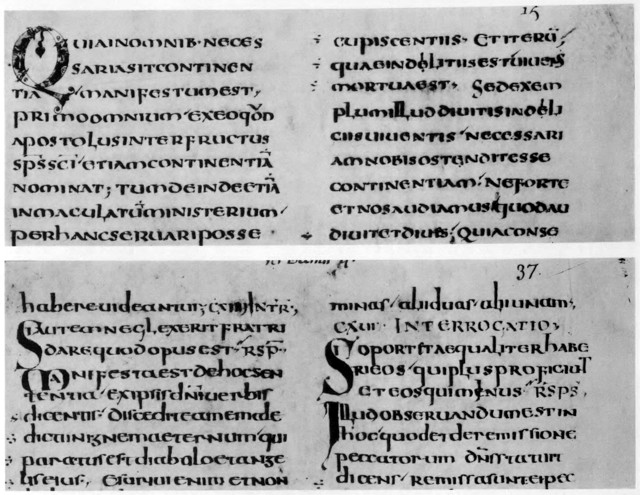 15
QUIAINOMNIB·NECES
SARIASITCONTINEN
TIAMANIFESTUMEST,
PRIMOOMNIUM·EXEOQD̄
APOSTOLUSINTERFRUCTUS
SP̄SSC̄I·ETIAMCONTINENTIĀ
NOMINAT; TUMDEINDEETIĀ
INMACULATŪMINISTERIUM·
PERHANCSERUARIPOSSE·
CUPISCENTIIS·ETITERŪ
QUAEINDELITIISESTUIUENS
MORTUAEST· SEDEXEM
PLUMILLUDDIUITISINDELI
CIISUIUENTIS·NECESSARI
AMNOBISOSTENDITESSE
CONTINENTIAM·NEFORTE
ETNOSAUDIAMUSQUODAU
DIUITETDIUES; QUIACONSE
37.
habereuideantur; CXIII INTR;
SIAUTEMNEGLEXERITFRATRI
DAREQUODOPUSEST·RSP·
MANIFESTAESTDEHOCSEN
TENTIAEXIPSISDN̄IUERBIS
dicentis·discediteamemale
dictiinignemaeternumqui
paratusestdiaboloetange
liseius, Esuriuienimetnon
minas·abiduas·abiunum;
INTERROCATIO;
SIOPORTETAEQUALITERHABE
RIEOS·QUIPLUSPROFICIUT
ETEOSQUIMINUS·RSPS,
ILLUDOBSERUANDUMESTIN
hocquodetderemissione
peccatorum dn̄sstatuit
dicens·remissasunteipec